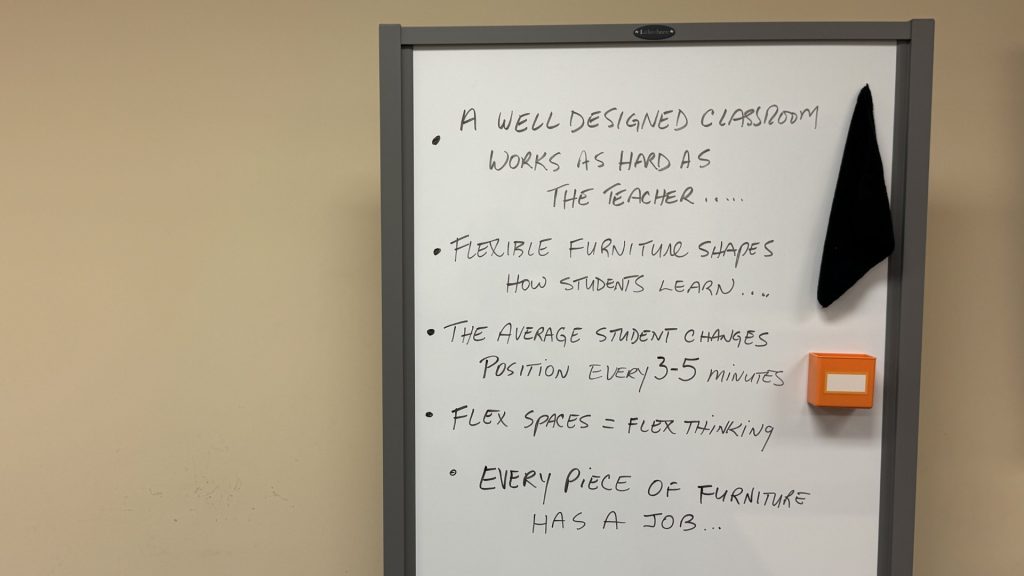 Lakeshore
• A WELL DESIGNED CLASSROOM
WORKS AS HARD AS
THE TEACHER.....
• FLEXIBLE FURNITURE SHAPES
HOW STUDENTS LEARN....
• THE AVERAGE STUDENT CHANGES
POSITION EVERY 3-5 MINUTES
• FLEX SPACES = FLEX THINKING
• EVERY PIECE OF FURNITURE
HAS A JOB...